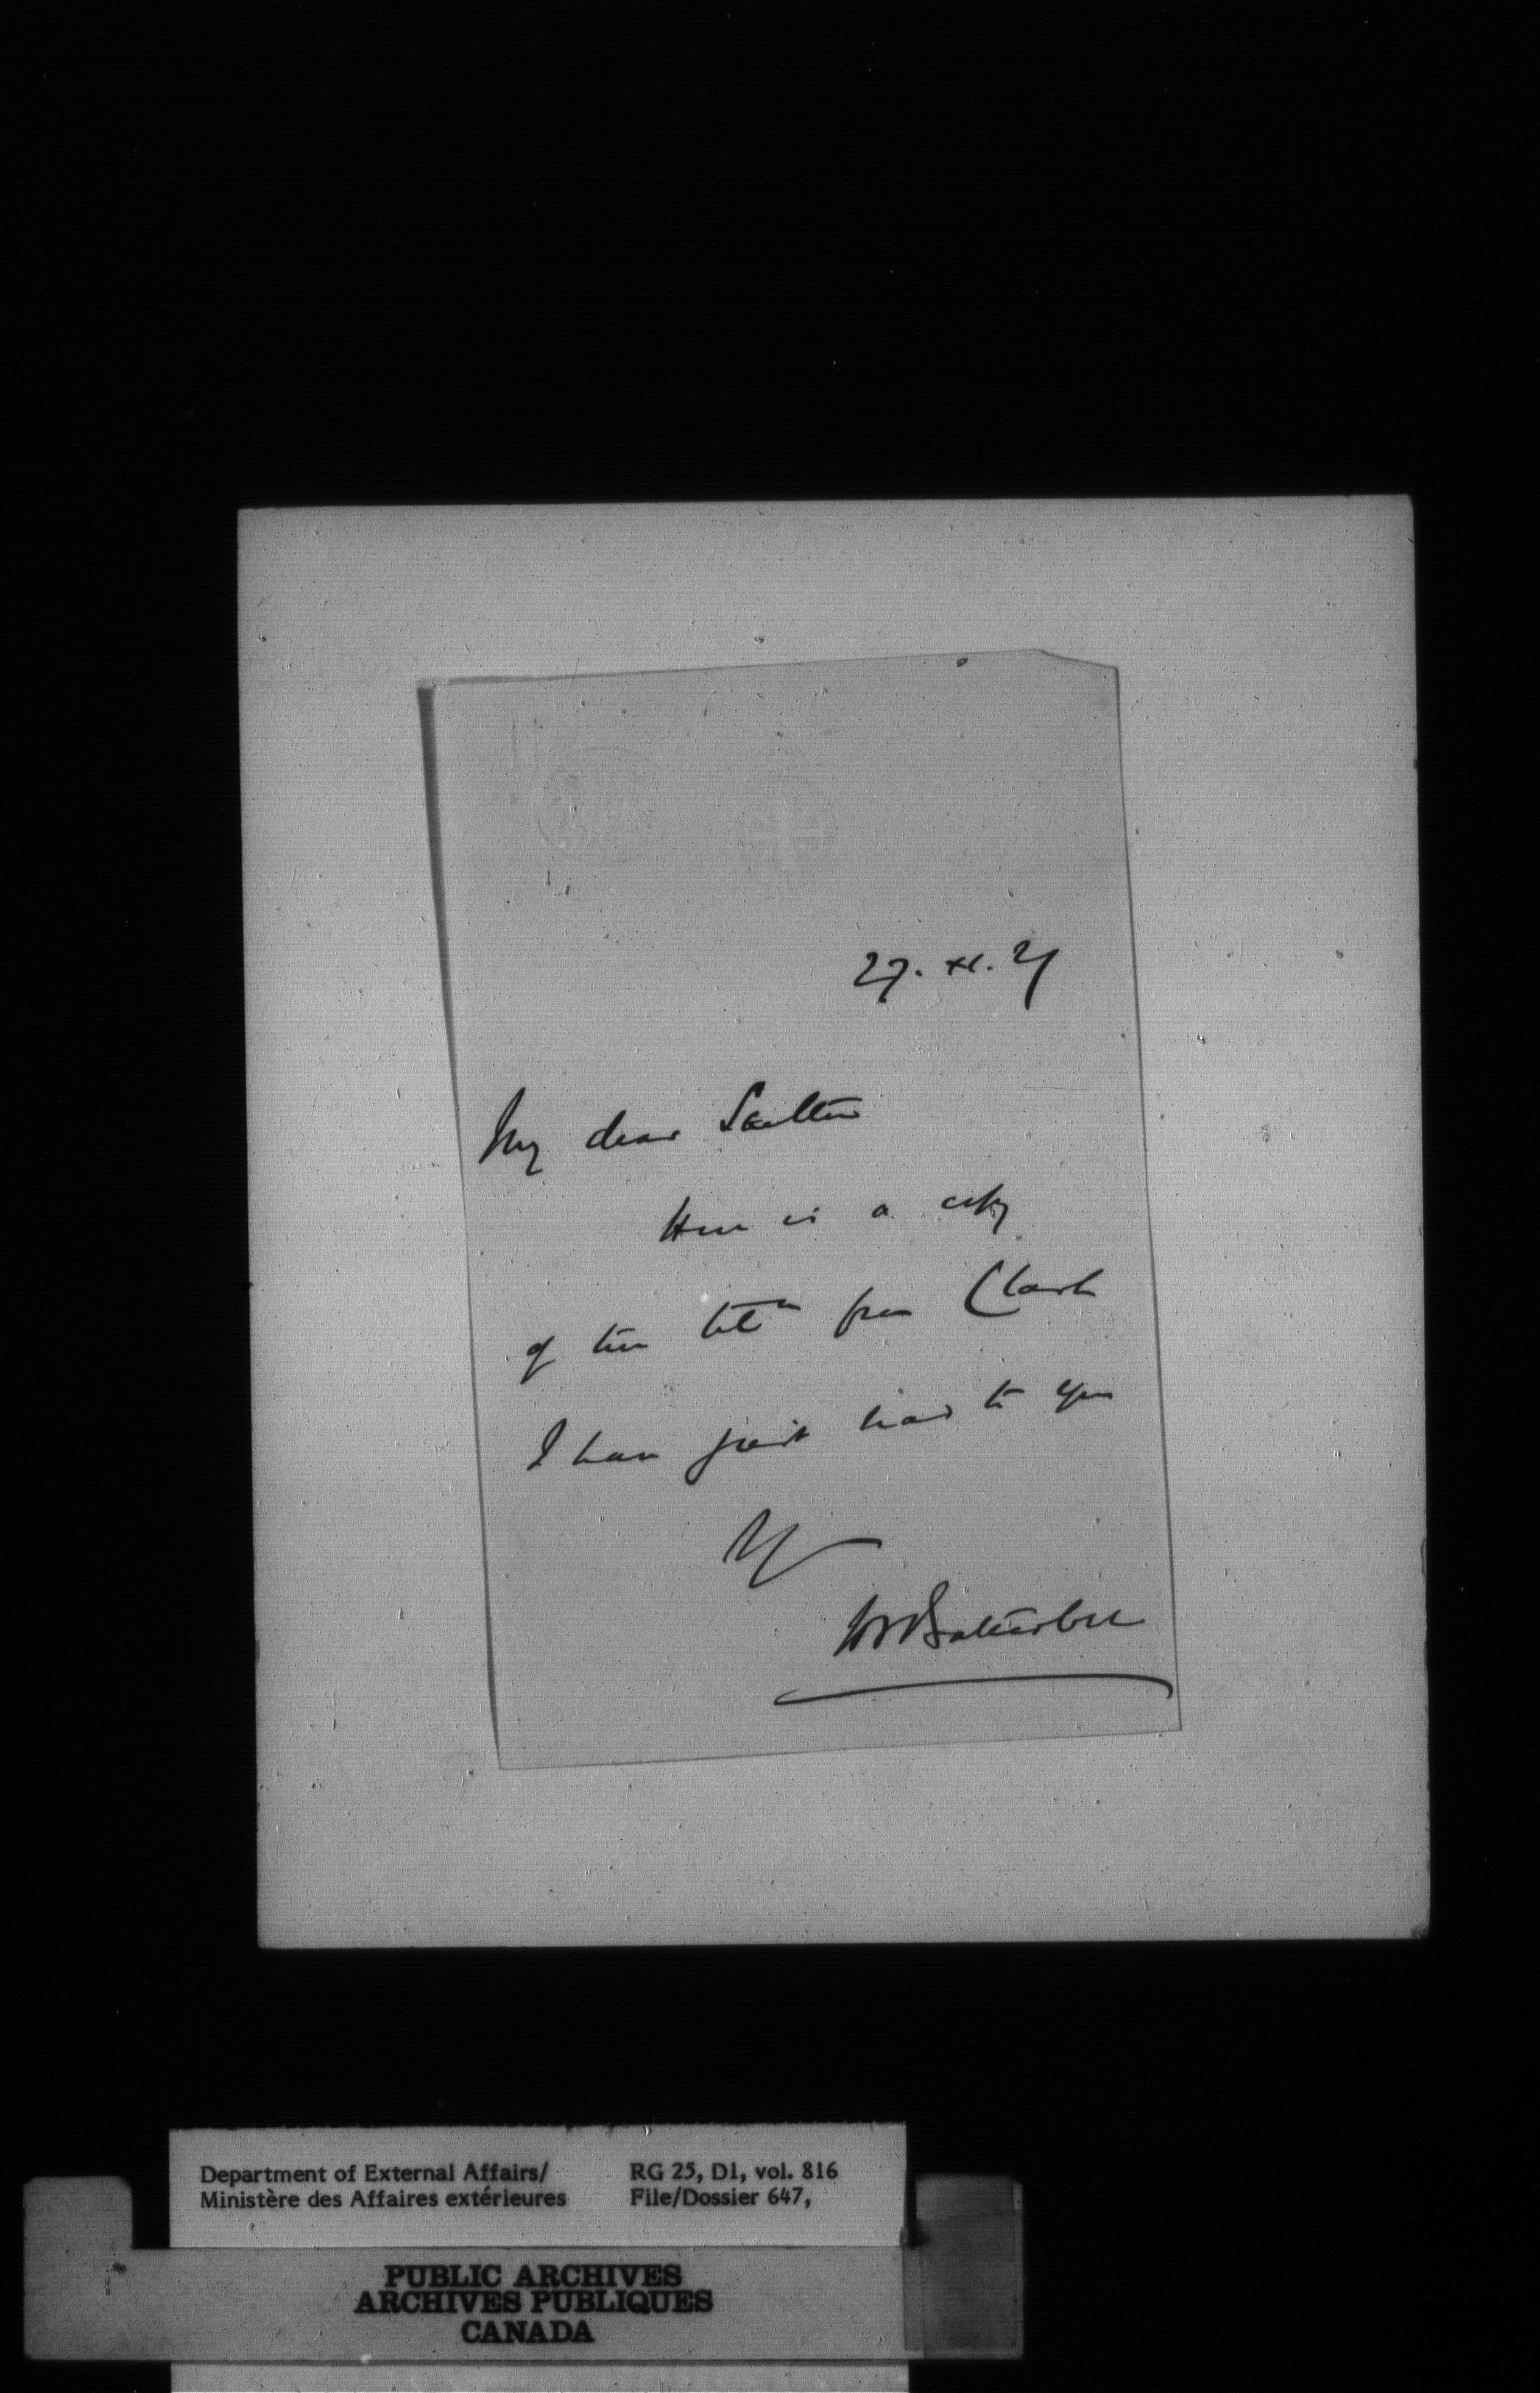 27. XI. 27
My dear Skelton
Here is a copy
of the telm from Clark
I have just read to you
Yrs
H W Batterbee
Department of External Affairs/
Ministère des Affaires extérieures
RG 25, D1, vol. 816
File/Dossier 647,
PUBLIC ARCHIVES
ARCHIVES PUBLIQUES
CANADA